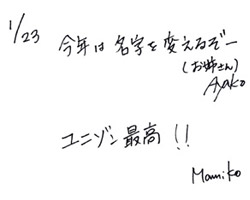 1/23
今年は名字を変えるぞー
(お姉さん)
Ayako
ユニゾン最高!!
Mamiko